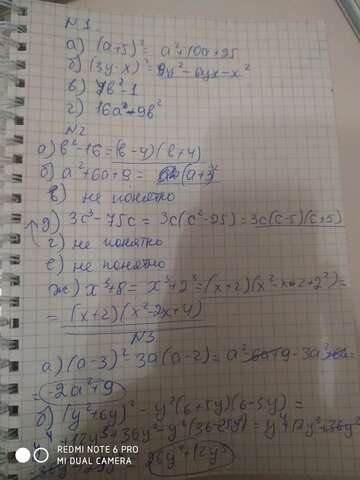 N1
а) (a+5)² = a²+10a+25
б) (3y-x)² = 9y²-6yx-x²
в) 4b²-1
г) 16a²-9b²
N2
а) b²-16=(b-4)(b+4)
б) a²+6a+9= (a+3)²
в) не понятно
д) 3c³-75c = 3c(c²-25)=3c(c-5)(c+5)
г) не понятно
е) не понятно
ж) x³+8 = x³+2³=(x+2)(x²-x·2+2²)=
= (x+2)(x²-2x+4)
N3
а) (a-3)²-3a(a-2)= a²-6a+9-3a²+6a=
= -2a²+9
б) (y²+6y)²-y²(6+5y)(6-5y)=
y⁴+12y³+36y²-y²(36-25y²)= y⁴+12y³+36y²
26y⁴+12y³
REDMI NOTE 6 PRO
MI DUAL CAMERA